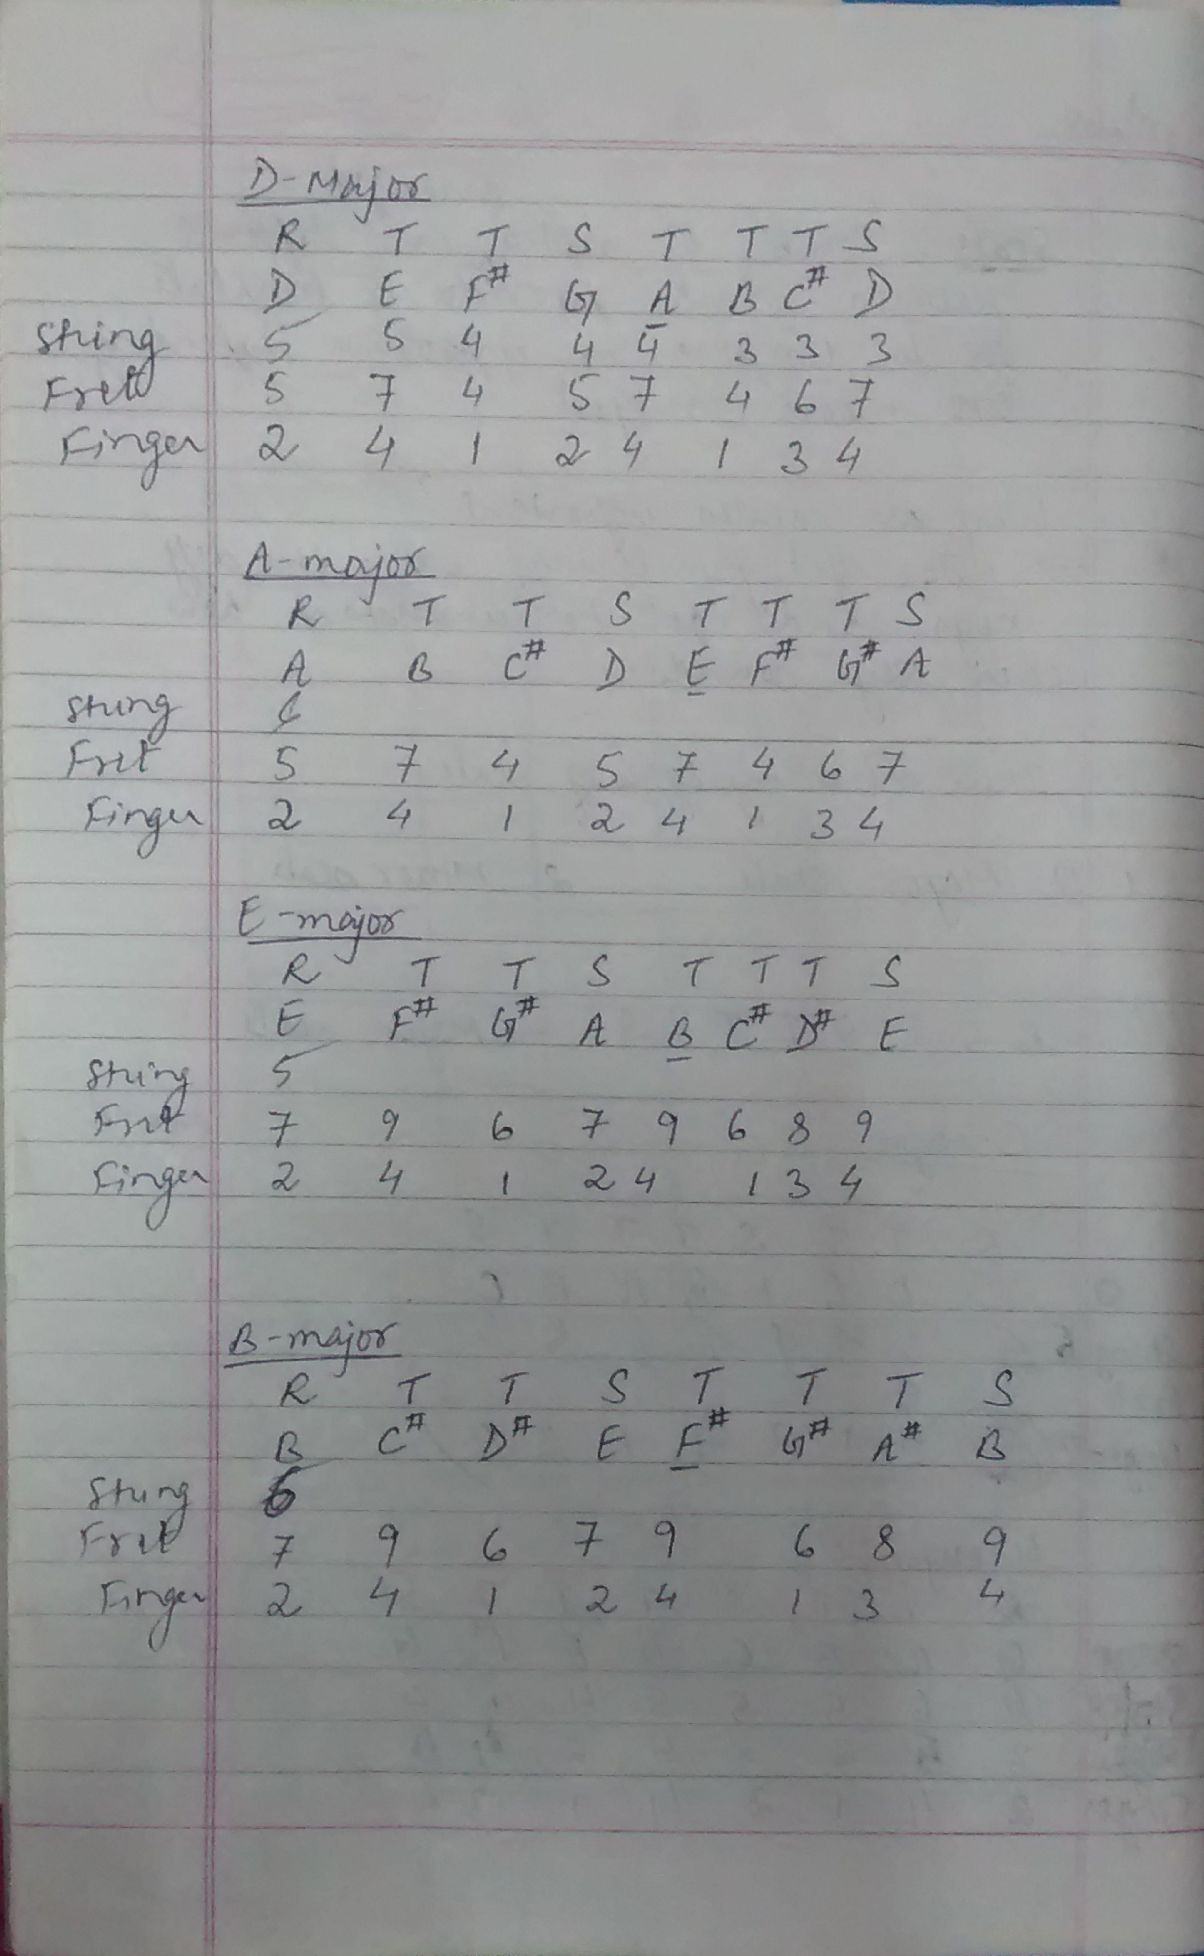 D-Major
R T T S T T T S
D E F# G A B C# D
String 5 5 4 4 4 3 3 3
Fret 5 7 4 5 7 4 6 7
Finger 2 4 1 2 4 1 3 4
A-major
R T T S T T T S
A B C# D E F# G# A
String 6
Fret 5 7 4 5 7 4 6 7
Finger 2 4 1 2 4 1 3 4
E-major
R T T S T T T S
E F# G# A B C# D# E
String 5
Fret 7 9 6 7 9 6 8 9
Finger 2 4 1 2 4 1 3 4
B-major
R T T S T T T S
B C# D# E F# G# A# B
String 6
Fret 7 9 6 7 9 6 8 9
Finger 2 4 1 2 4 1 3 4